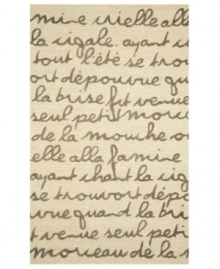 mine crielle alle
la cigale. ayant c
tout l'été se trou
ort dépourvue qua
la brise fut venue
seul petit morce
de la mouche ou
elle alla famine
ayant chant la cig
se trouvort dépo
vue quand la bri
t venue seul peti
morceau de la m